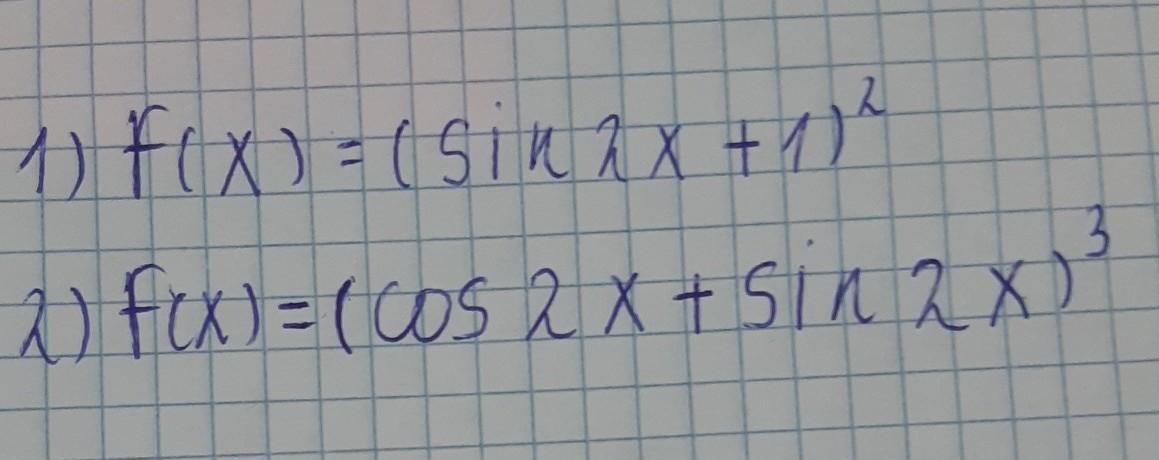 1) f(x) = (sin 2x + 1)²
2) f(x) = (cos 2x + sin 2x)³